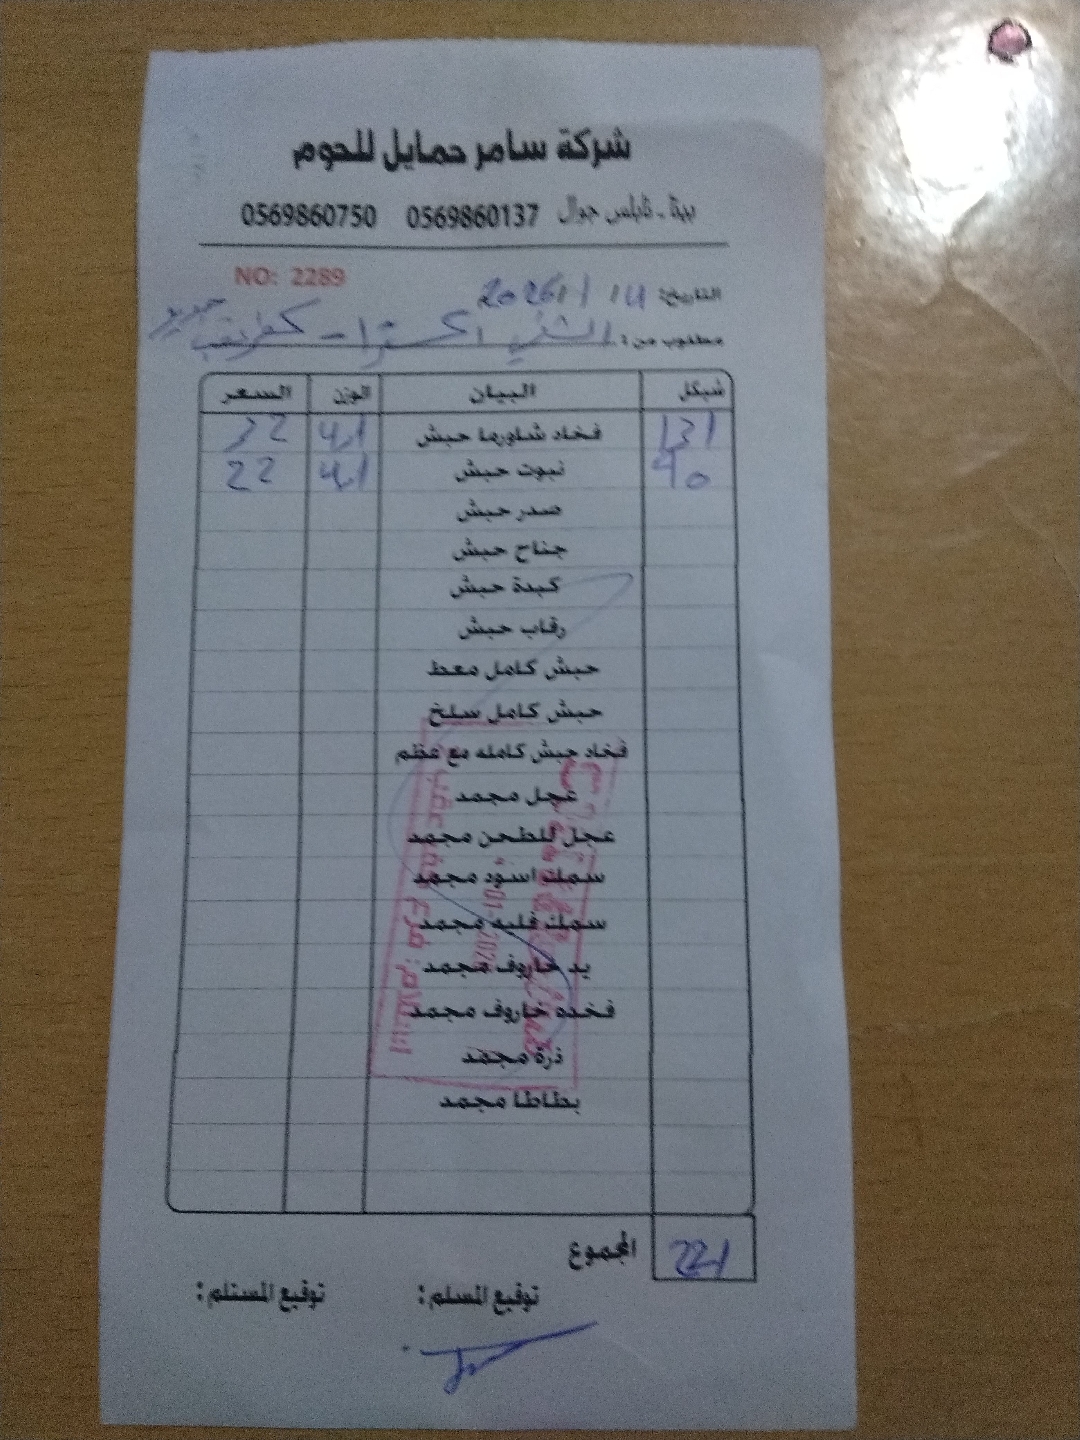 شركة سامر حمايل للحوم
بيتا - نابلس جوال 0569860137 0569860750
NO: 2289
التاريخ: 14 / 1 / 2026
مطلوب من: الشني اكسترا - كفر عقب
شيكل البيان الوزن السعر
131 فخاد شاورما حبش 4.1 32
90 نبوت حبش 4.1 22
صدر حبش
جناح حبش
كبدة حبش
رقاب حبش
حبش كامل معط
حبش كامل سلخ
فخاد حبش كامله مع عظم
عجل مجمد
عجل للطحن مجمد
سمك اسود مجمد
سمك فليه مجمد
يد خاروف مجمد
فخده خاروف مجمد
ذرة مجمد
بطاطا مجمد
استلام: فرع كفر عقب
المجموع 221
توقيع المسلم: توقيع المستلم: